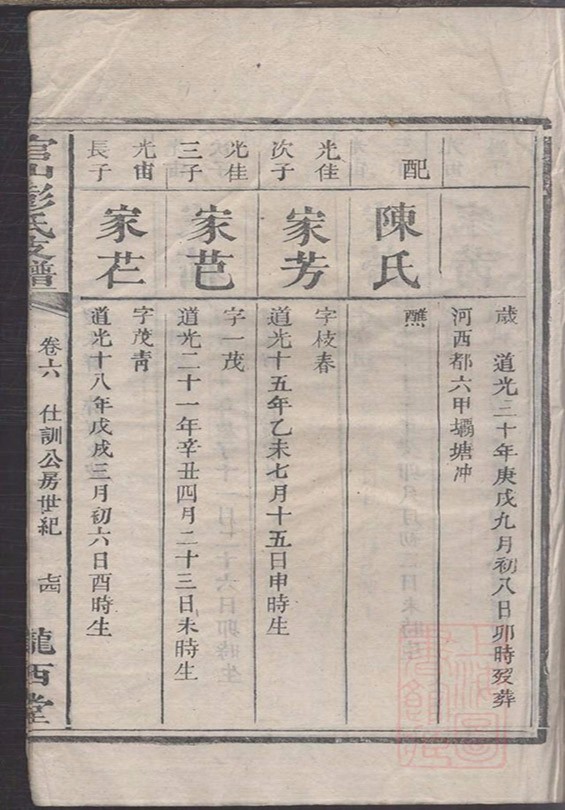 歲　道光三十年庚戌九月初八日卯時歿葬
河西都六甲壩塘冲
配
陳氏
醮
光佳
次子
家芳
字枝春
道光十五年乙未七月十五日申時生
光佳
三子
家芭
字一茂
道光二十一年辛丑四月二十三日未時生
光宙
長子
家芒
字茂靑
道光十八年戊戌三月初六日酉時生
官山彭氏支譜
卷六　仕訓公房世紀
隴西堂
上海圖書館藏